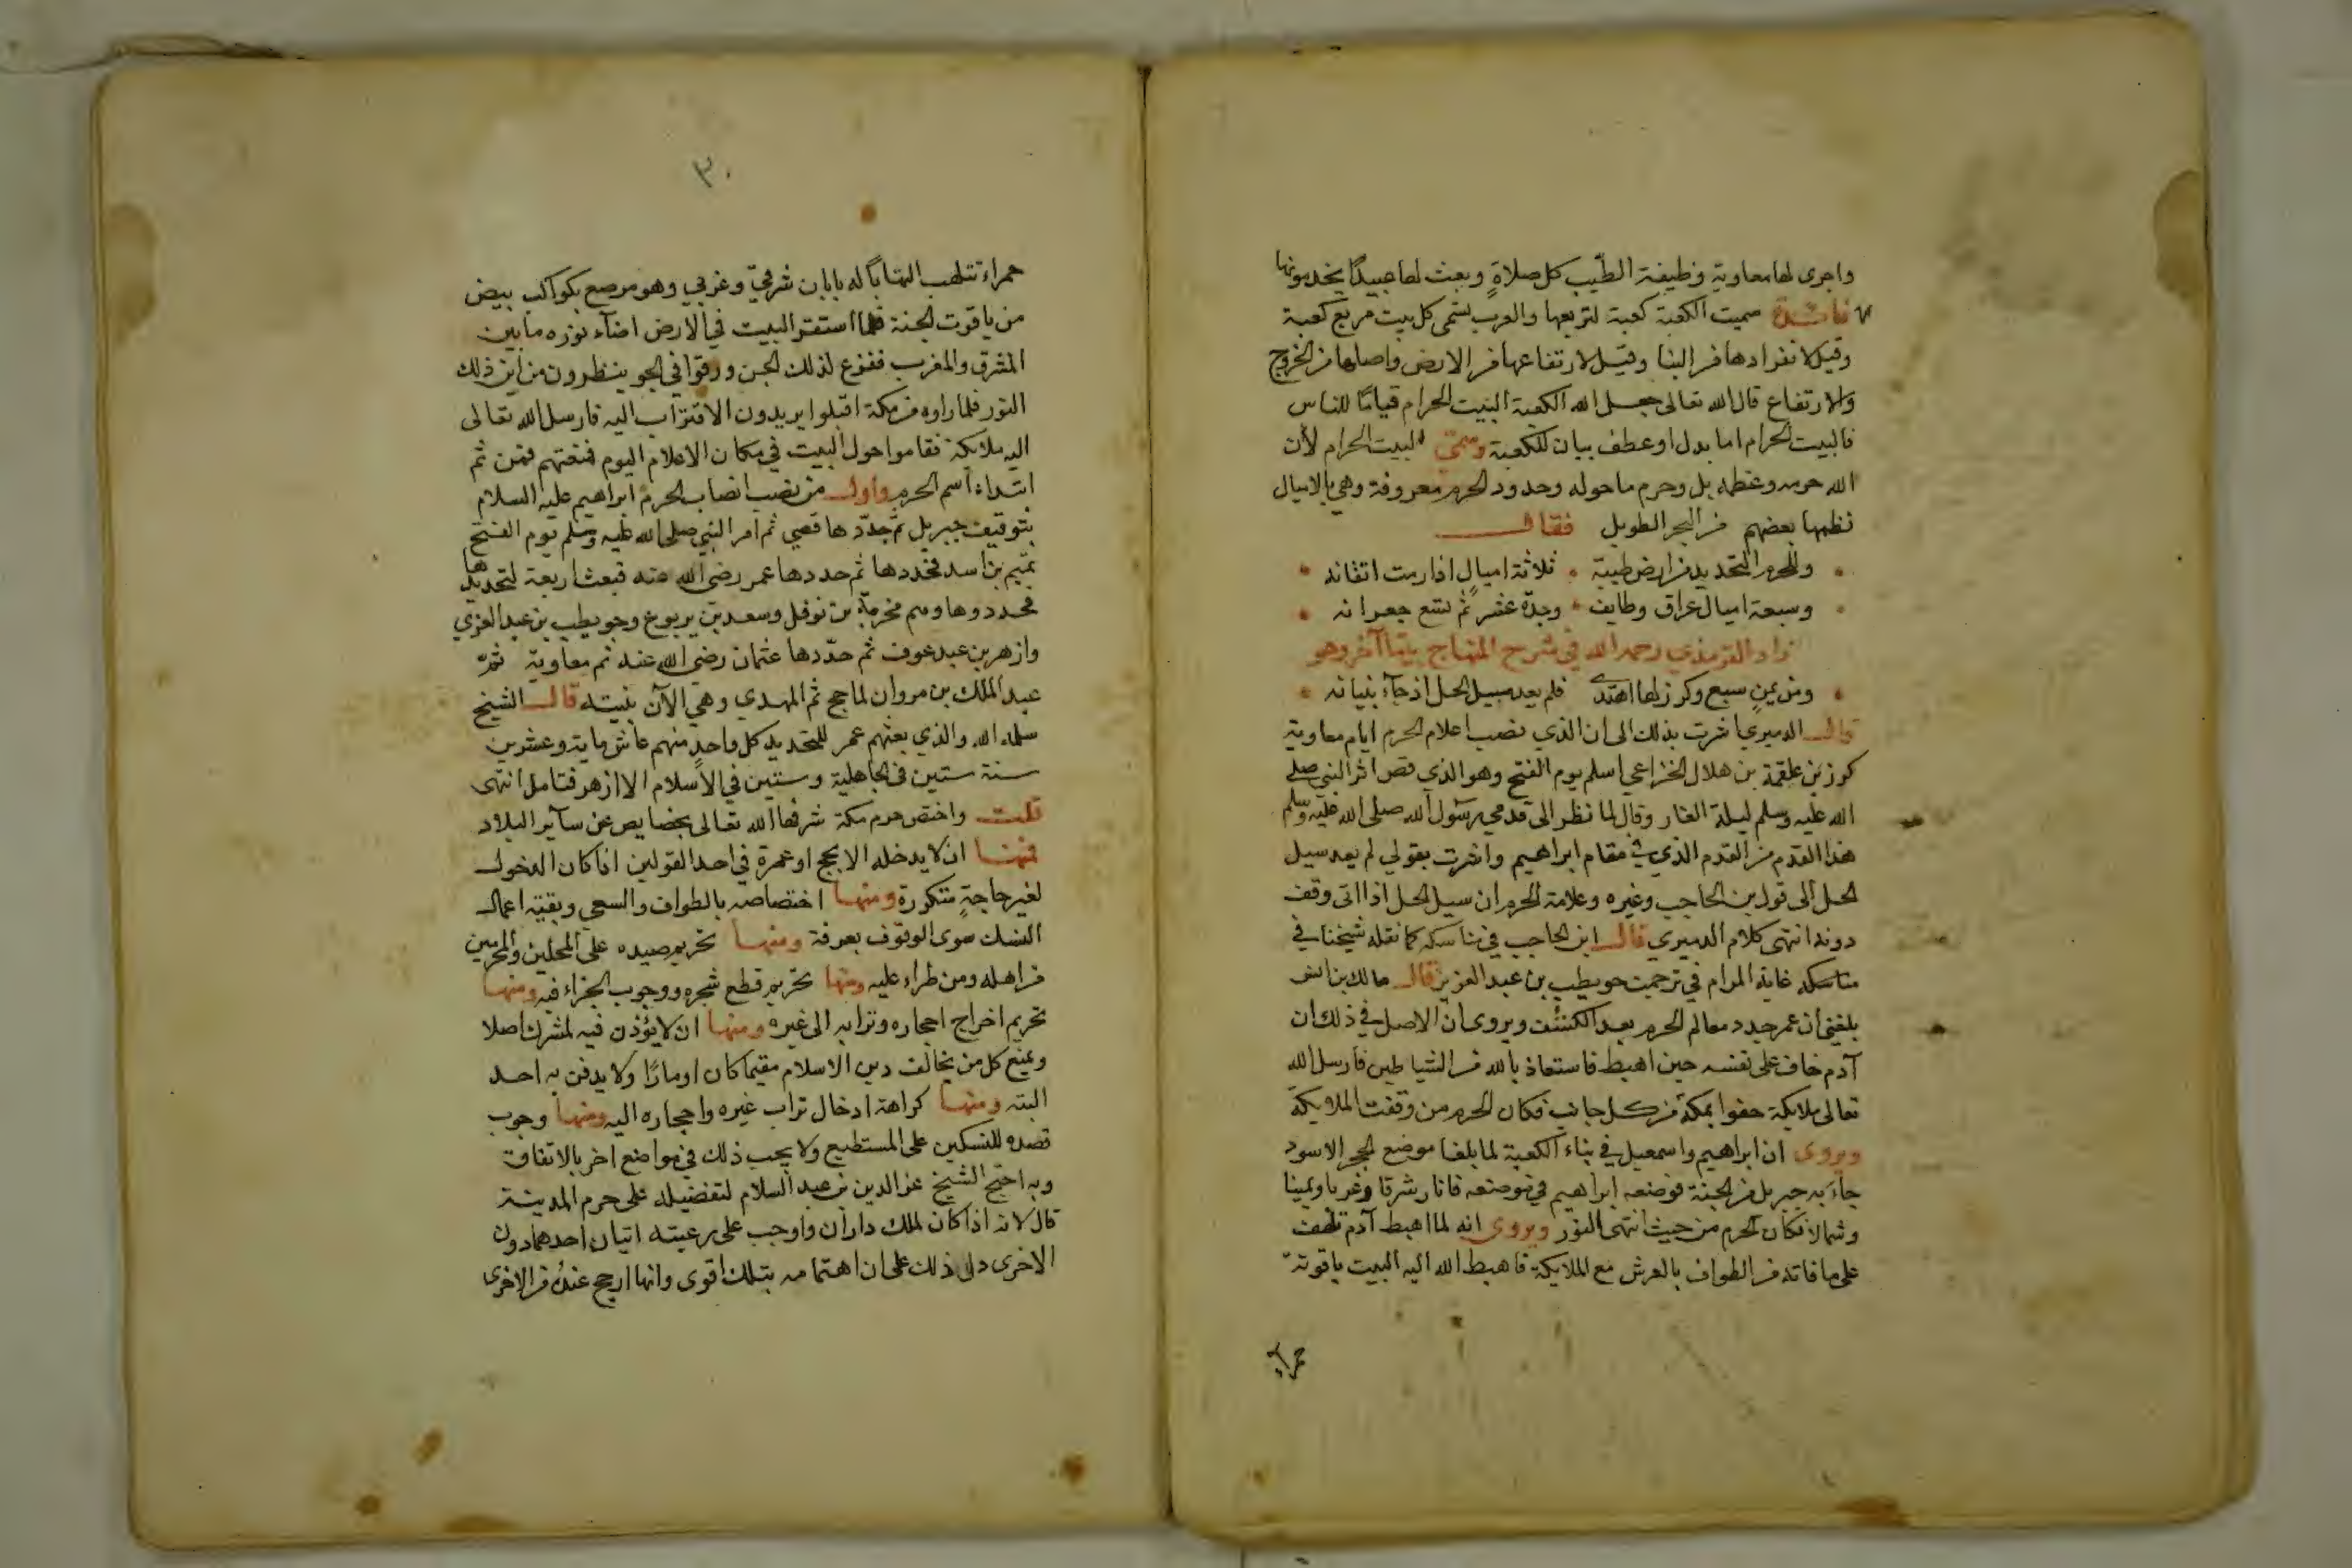 واجرى لها معاوية وظيفة الطيب كل صلاةٍ وبعث لها عبيدًا يخدمونها
فائدة سميت الكعبة كعبة لتربعها والعرب تسمى كل بيت مربع كعبة
وقيل لانفرادها من البنا وقيل لارتفاعها من الارض واصلها من الخروج
والارتفاع قال الله تعالى جعل الله الكعبة البيت الحرام قيامًا للناس
فالبيت الحرام اما بدل او عطف بيان للكعبة وسمى البيت الحرام لأن
الله حرمه وعظمه بل وحرم ما حوله وحدود الحرم معروفة وهي بالاميال
نظمها بعضهم من البحر الطويل فقال
وللحرم التحديد من ارض طيبة ثلاثة اميالٍ اذا رمت اتقانه
وسبعة اميال عراق وطايف وجدة عشر ثم تسع جعرانه
زاد الترمذي رحمه الله في شرح المنهاج بيتا آخر وهو
ومن يمنٍ سبع وكرز لها اهتدى فلم يعد سبيل الحل اذ جاء بنيانه
قال الدميري اشرت بذلك الى ان الذي نصب اعلام الحرم ايام معاوية
كرز بن علقمة بن هلال الخزاعي اسلم يوم الفتح وهو الذي قص اثر النبي صلى
الله عليه وسلم ليلة الغار وقال لما نظر الى قدمي رسول الله صلى الله عليه وسلم
هذا القدم من القدم الذي في مقام ابراهيم واشرت بقولي لم يعد سيل
الحل الى قول بن الحاجب وغيره وعلامة الحرم ان سيل الحل اذا اتى وقف
دونه انتهى كلام الدميري قال ابن الحاجب في مناسكه كما نقله شيخنا في
مناسكه غاية المرام في ترجمت حويطب بن عبد العزيز قال مالك بن انس
بلغني ان عمر جدد معالم الحرم بعد الكشف ويروى ان الاصل في ذلك ان
آدم خاف على نفسه حين اهبط فاستعاذ بالله من الشياطين فارسل الله
تعالى ملايكة حفوا بمكة من كل جانب فكان الحرم من وقفت الملايكة
ويروى ان ابراهيم واسمعيل في بناء الكعبة لما بلغا موضع الحجر الاسود
جاء به جبريل من الجنة فوضعه ابراهيم في موضعه فانار شرقا وغربا ويمينا
وشمالا فكان الحرم من حيث انتهى النور ويروى انه لما اهبط آدم تلهف
على ما فاته من الطواف بالعرش مع الملايكة فاهبط الله اليه البيت ياقوتة
حمراء
٣٠
حمراء تتلهب التهابًا له بابان شرقيّ وغربي وهو مرصع بكواكب بيض
من ياقوت الجنة فلما استقر البيت في الارض اضآء نوره ما بين
المشرق والمغرب ففزع لذلك الجن ورقوا في الجو ينظرون من اين ذلك
النور فلما راوه من مكة اقبلوا يريدون الاقتراب اليه فارسل الله تعالى
اليه ملايكة فقاموا حول البيت في مكان الاعلام اليوم فمنعتهم فمن ثم
ابتداء اسم الحرم واول من نصب انصاب الحرم ابراهيم عليه السلام
بتوقيف جبريل ثم جدّدها قصي ثم امر النبي صلى الله عليه وسلم يوم الفتح
تميم بن اسد فجددها ثم جددها عمر رضى الله عنه فبعث اربعة لتحديدها
فحددوها وهم مخرمة بن نوفل وسعد بن يربوع وحويطب بن عبد العزي
وازهر بن عبد عوف ثم جدّدها عثمان رضى الله عنه ثم معاوية ثم
عبد الملك بن مروان لما حج ثم المهدي وهي الآن بنيته قال الشيخ
سلمه الله والذي بعثهم عمر للتحديد كل واحدٍ منهم عاش ماية وعشرين
سنة ستين في الجاهلية وستين في الاسلام الا ازهر فتامل انتهى
قلت واختص حرم مكة شرفها الله تعالى بخصايص عن سآير البلاد
فمنها ان لا يدخله الا بحج او عمرة في احد القولين اذا كان الدخول
لغير حاجةٍ متكررة ومنها اختصاصه بالطواف والسعي وبقية اعمال
النسك سوى الوقوف بعرفة ومنها تحريم صيده على المحلين والمحرمين
من اهله ومن طراء عليه ومنها تحريم قطع شجره ووجوب الجزاء فيه ومنها
تحريم اخراج احجاره وترابه الى غيره ومنها ان لا يؤذن فيه لمشرك اصلا
ويمنع كل من يخالف دين الاسلام مقيما كان او مارًا ولا يدفن به احد
البته ومنها كراهة ادخال تراب غيره واحجاره اليه ومنها وجوب
قصده للنسكين على المستطيع ولا يجب ذلك في مواضع اخر بالاتفاق
وبه احتج الشيخ عز الدين بن عبد السلام لتفضيله على حرم المدينة
قال لانه اذا كان لملك داران واوجب على رعيته اتيان احدهما دون
الاخرى دل ذلك على ان اهتمامه بتلك اقوى وانها ارجح عنده من الاخرى